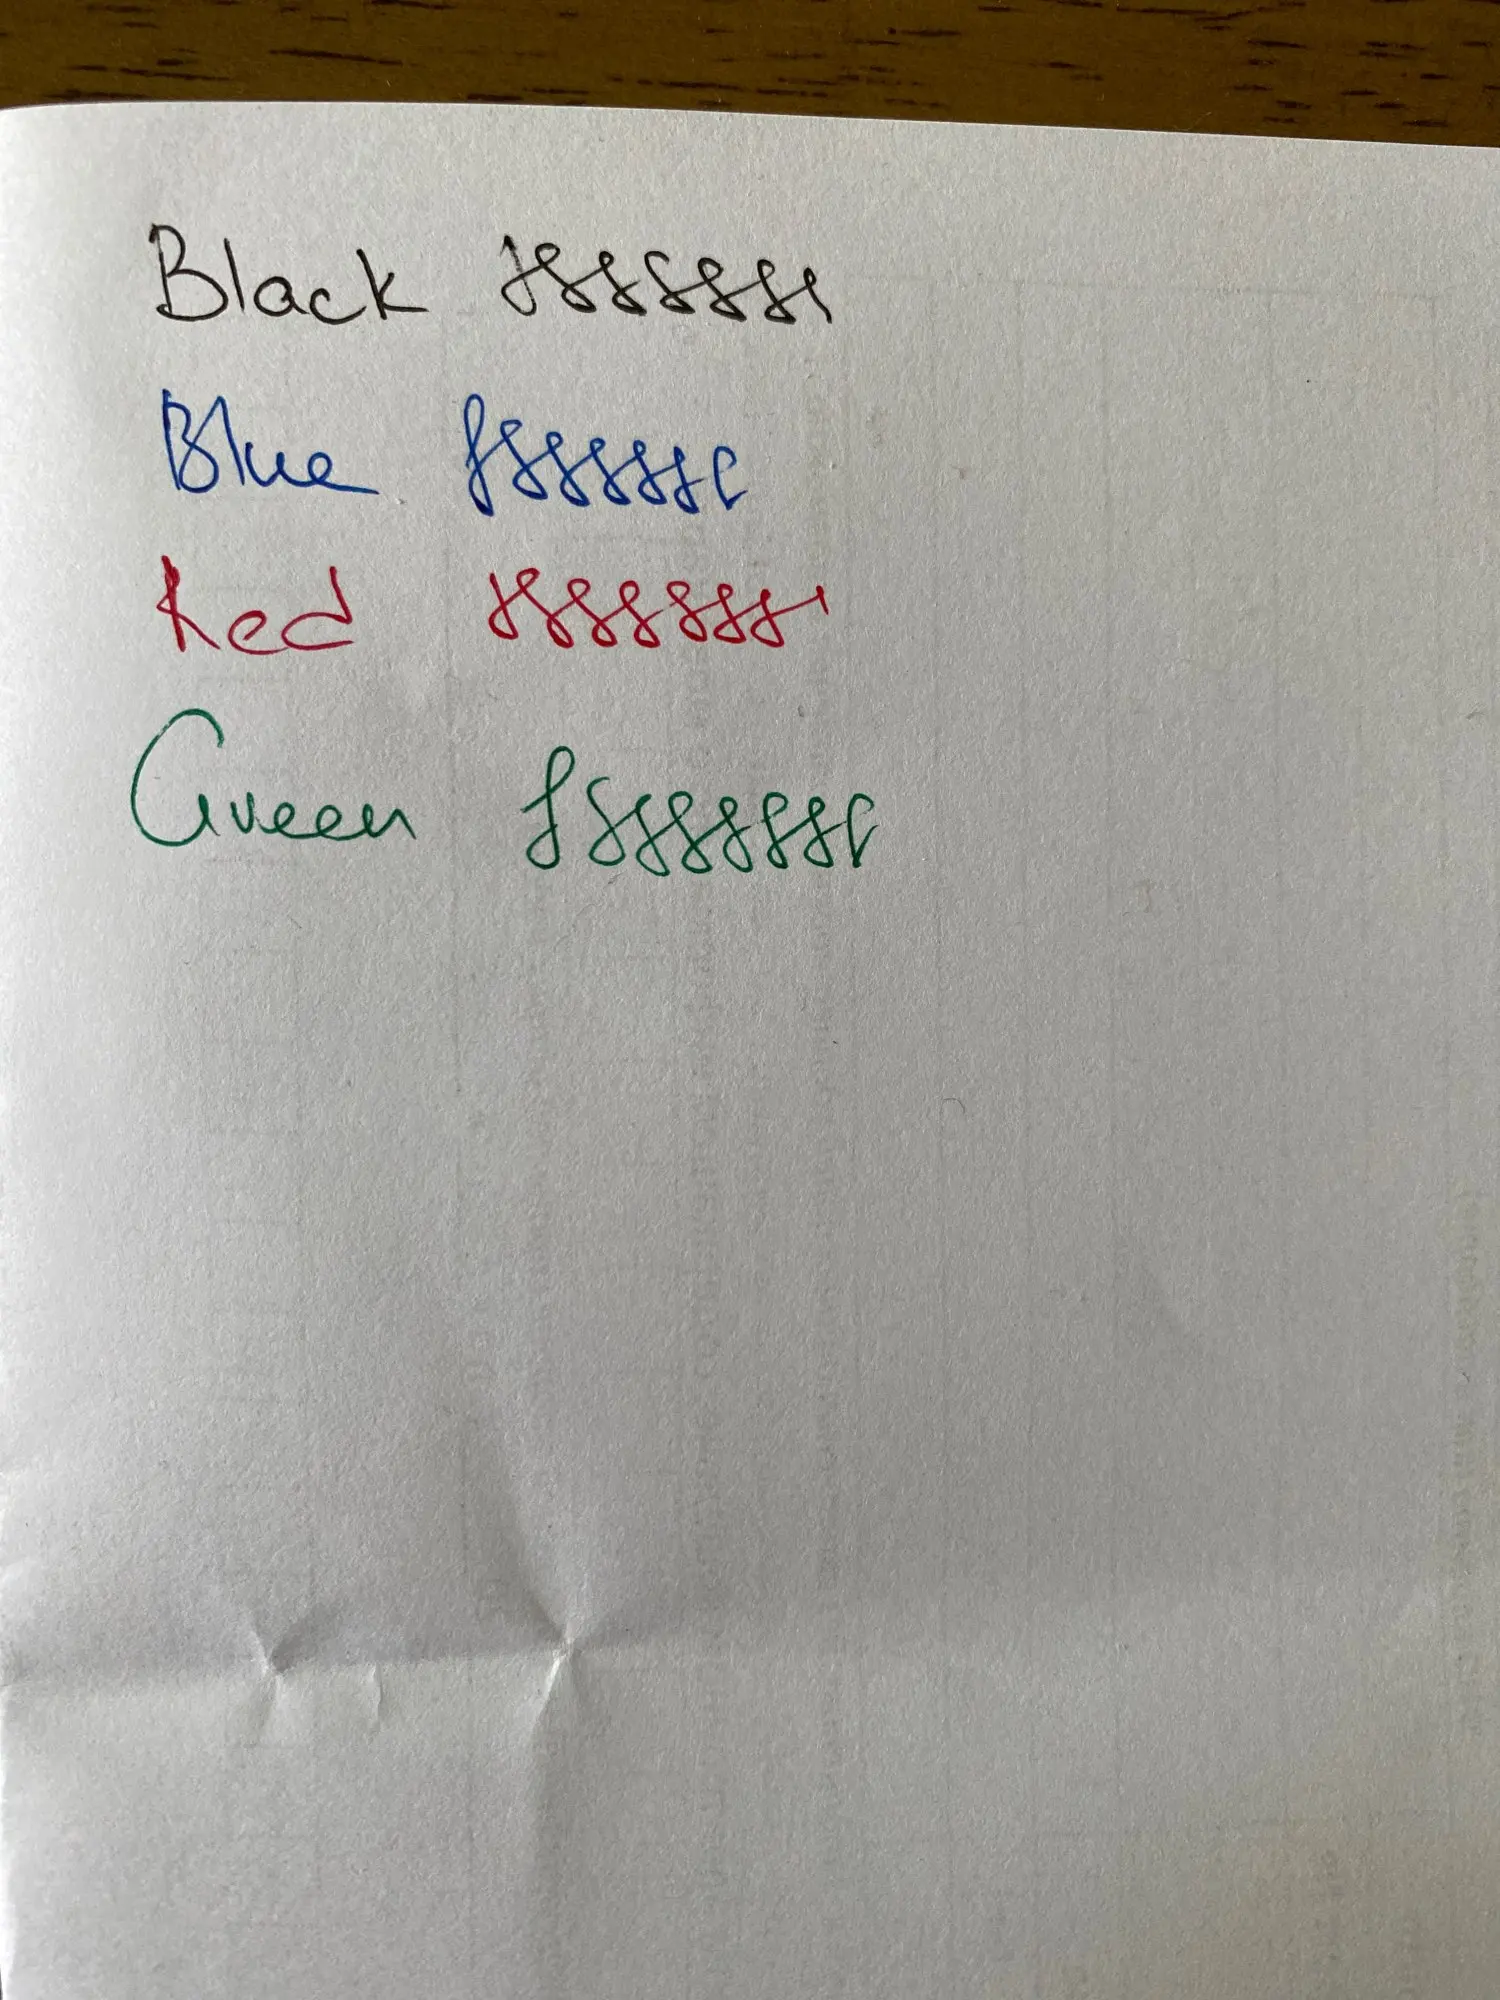 Black
Blue
Red
Green